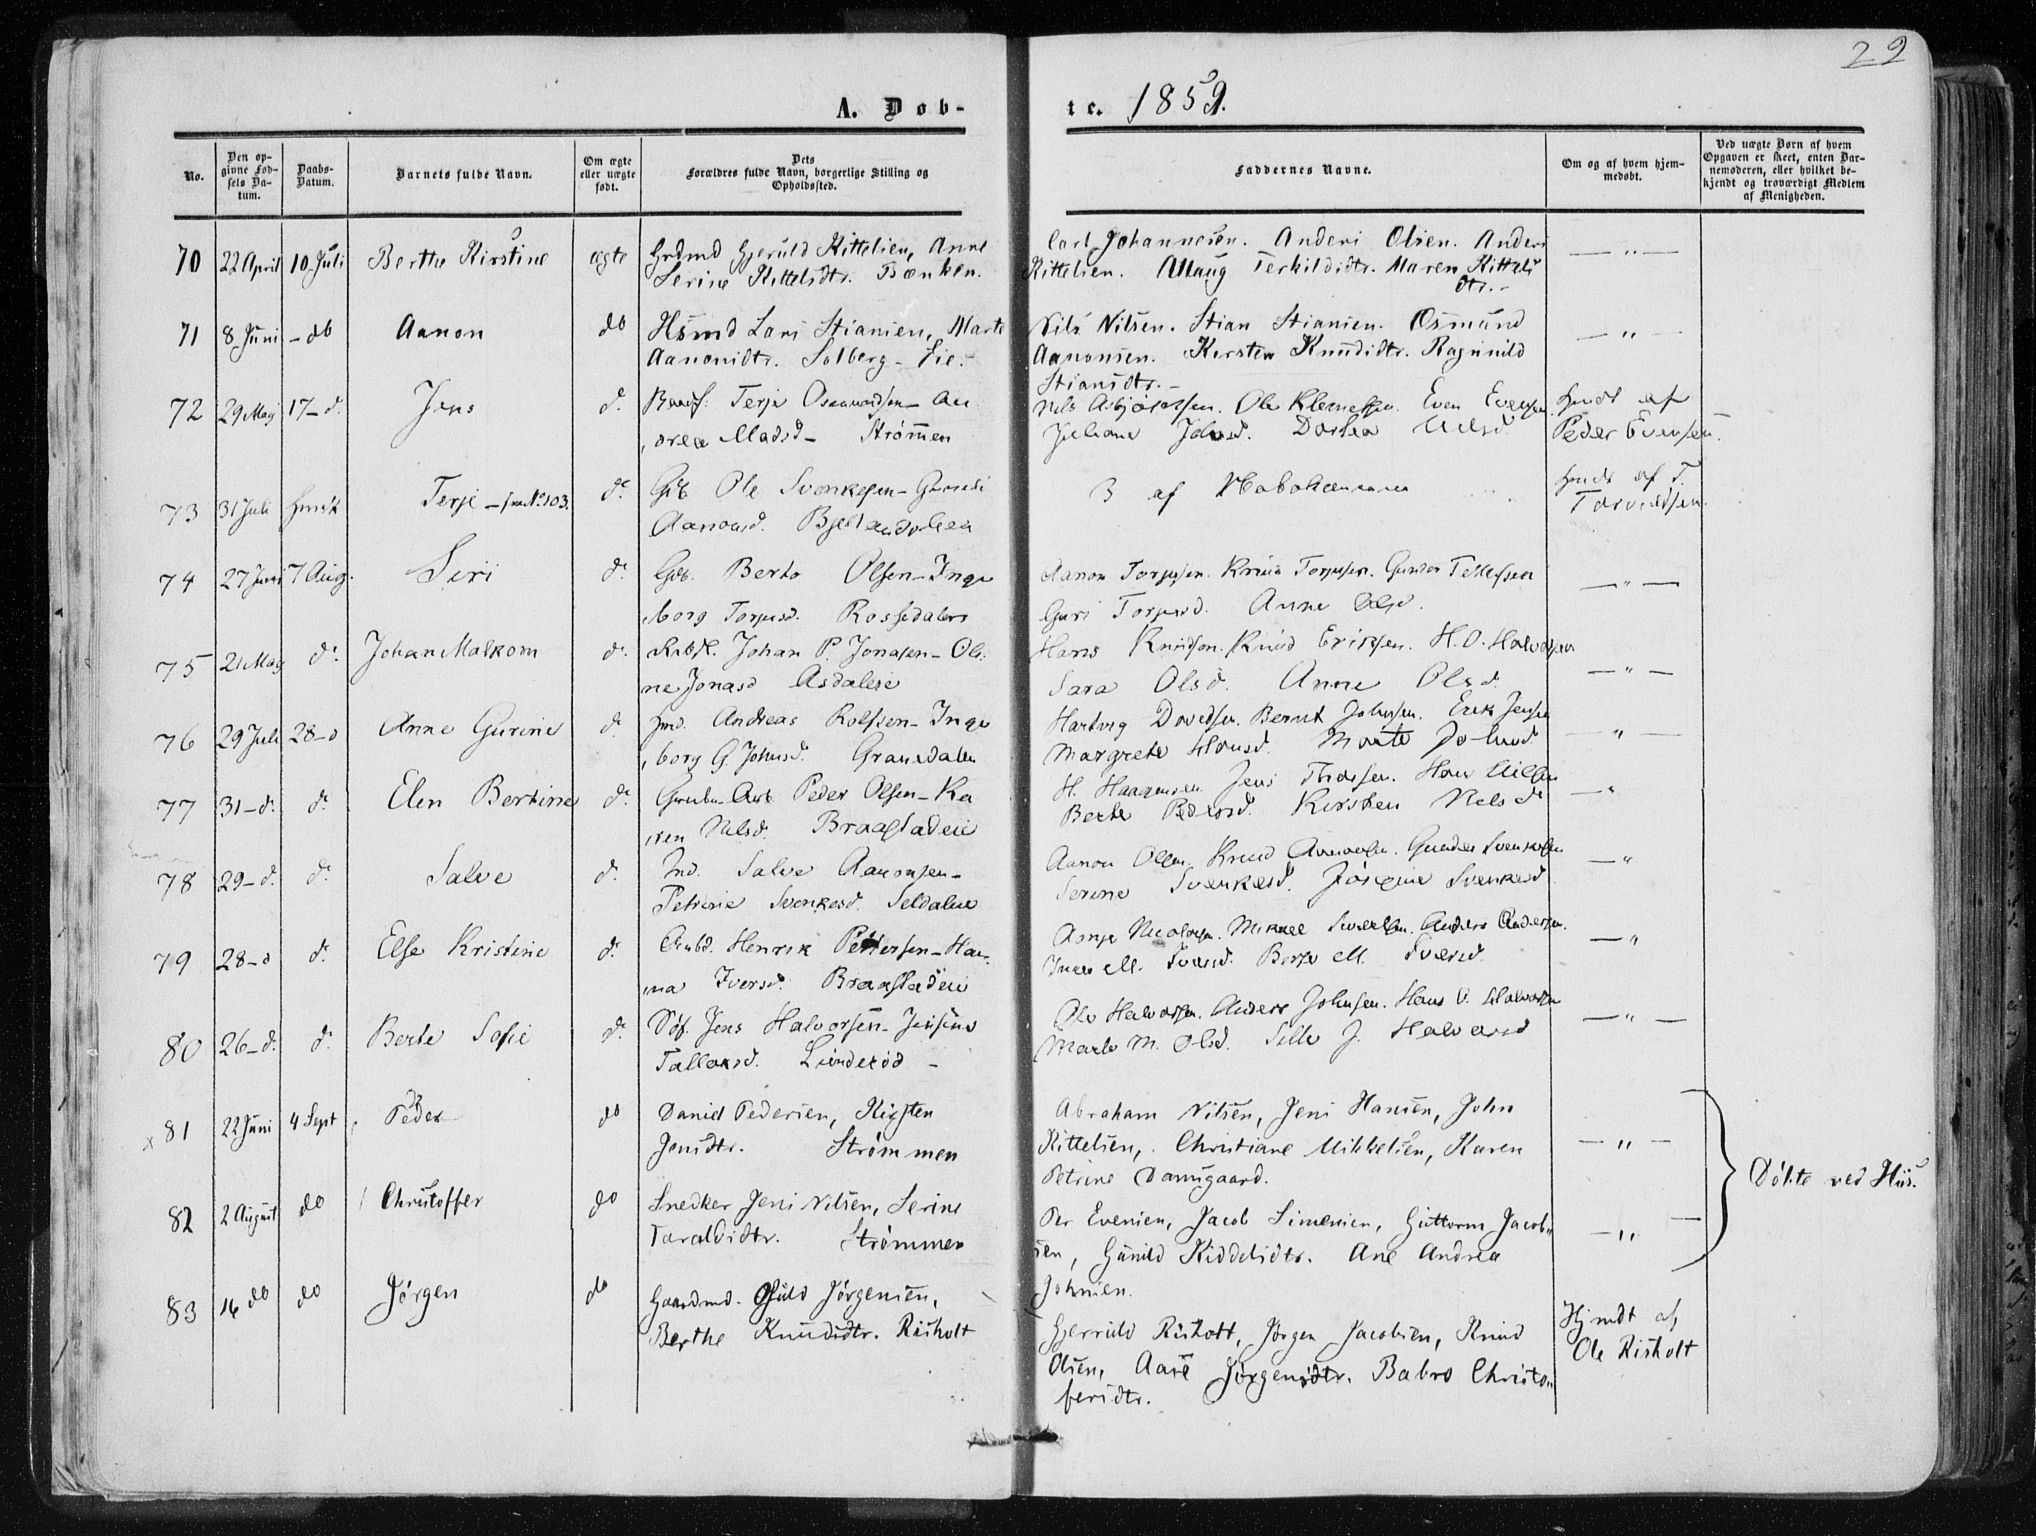 29
A. Døb-
te. 1859.
No.
Den op-
givne Fød-
sels Da-
tum.
Daabs-
Datum.
Barnets fulde Navn.
Om ægte
eller uægte
født.
Dets
Forældres fulde Navn, borgerlige Stilling og
Opholdssted.
Faddernes Navne.
Om og af hvem hjem-
medøbt.
Ved uægte Børn af hvem
Opgaven er skeet, enten Bar-
nemoderen, eller hvilket be-
kjendt og troværdigt Medlem
af Menigheden.
70 22 April 10 Juli Berthe Kirstine ægte Grdmd Gjeruld Kittelsen, Anne
Serine Kittelsdtr. Bænken.
Carl Johannesen. Anders Olsen. Anders
Kittelsen. Allaug Terkildsdtr. Maren Kittels
dtr. -
— " —
71 8 Juni - do Aanon do Hsmd Lars Stiansen, Marte
Aanonsdtr. Solberg - Eie.
Nils Nilsen. Stian Stiansen. Osmund
Aanonsen. Kirsten Knudsdtr. Ragnild
Stiansdtr. -
— " —
72 29 May 17 - d. Jens d. Terje Osmundsen - An
drea Madsd - Strømmen
Nels Asbjørnsen. Ole Klemetsen. Even Evensen
Juliane Johnsd. Dorthea Nelsd
hmdt af
Peder Evensen.
73 31 Juli hmdt Terje - fra No 103. d. Gdb Ole Svenkesen - Gunild
Aanonsd. Bjellandsheia
3 af Naboherrerne
hmdt af T.
Torvildsen.
74 27 Juni 7 Aug. Siri d. Gdb. Berto Olsen - Inge
borg Torjusd. Rossedalen
Aanon Torjusen. Knud Torjusen. Gunder Tellefsen
Guri Torjusd. Anne Olsd.
— " —
75 21 May d. Johan Malkom d. Johan P. Jonasen - Oli
ne Jonasd Asdaleie
Hans Knudsen. Knud Eriksen. H. O. Halvorsen
Sara Olsd. Anne Olsd
— " —
76 29 Juli 28 - d Anne Gurine d. Jmd. Andreas Rolfsen - Inge
borg G. Johnsd. Gransdalen
Hartvig Davidsen. Bernt Johnsen. Erik Jensen
Margrete Hansd. Marte Johnsd
— " —
77 31 - d. d. Elen Bertine d. Grube-Arb Peder Olsen - Ka
ren Nelsd. Braastadeie
H. Haagensen Jens Thorsen. Hans Nilsen
Berte Pedersd. Kirsten Nelsd
— "
78 29 - d. d. Salve d. Ind. Salve Aanonsen -
Petrine Svenkesd. Seldalen
Aanon Olsen. Knud Aanonsen. Gunder Svenkesen
Serine Svenkesd. Josefine Svenkesd
— "
79 28 - d d. Else Kristine d. Arbd. Henrik Pettersen - Han
na Iversd. Braastadeie
Asmje Nicolaysen. Mikael Sivertsen. Anders Andersen.
Inger M. Iversd. Berte M. Iversd.
— "
80 26 - d. d. Berte Sofie d. Søf. Jens Halvorsen - Jensine
Tallaksd. Lunderød -
Ole Halvorsen. Anders Johnsen. Hans O. Halvorsen
Marte M. Olsd. Sille J. Halvorsd
— " —
x 81 22 Juni 4 Sept Peder do Daniel Pedersen, Kirsten
Jensdtr. Strømmen
Abraham Nilsen, Jens Hansen, John
Kittelsen, Christiane Mikkelsen, Karen
Petrine Damsgaard.
— " —
82 2 August do Christoffer do Snedker Jens Nilsen, Serine
Taraldsdtr. Strømmen
Per Evensen, Jacob Simensen, Guttorm Jacob"
sen, Gunild Kiddelsdtr. Ane Andrea
Johnsen.
— " —
Døbte ved Hiis.
83 16 do do Jørgen do Gaardmd. Ojuld Jørgensen,
Berthe Knudsdtr. Risholt
Gjerruld Risholt, Jørgen Jacobsen, Knud
Olsen, Aase Jørgensdtr. Babro Christo"
fersdtr.
Hjmdt af
Ole Risholt